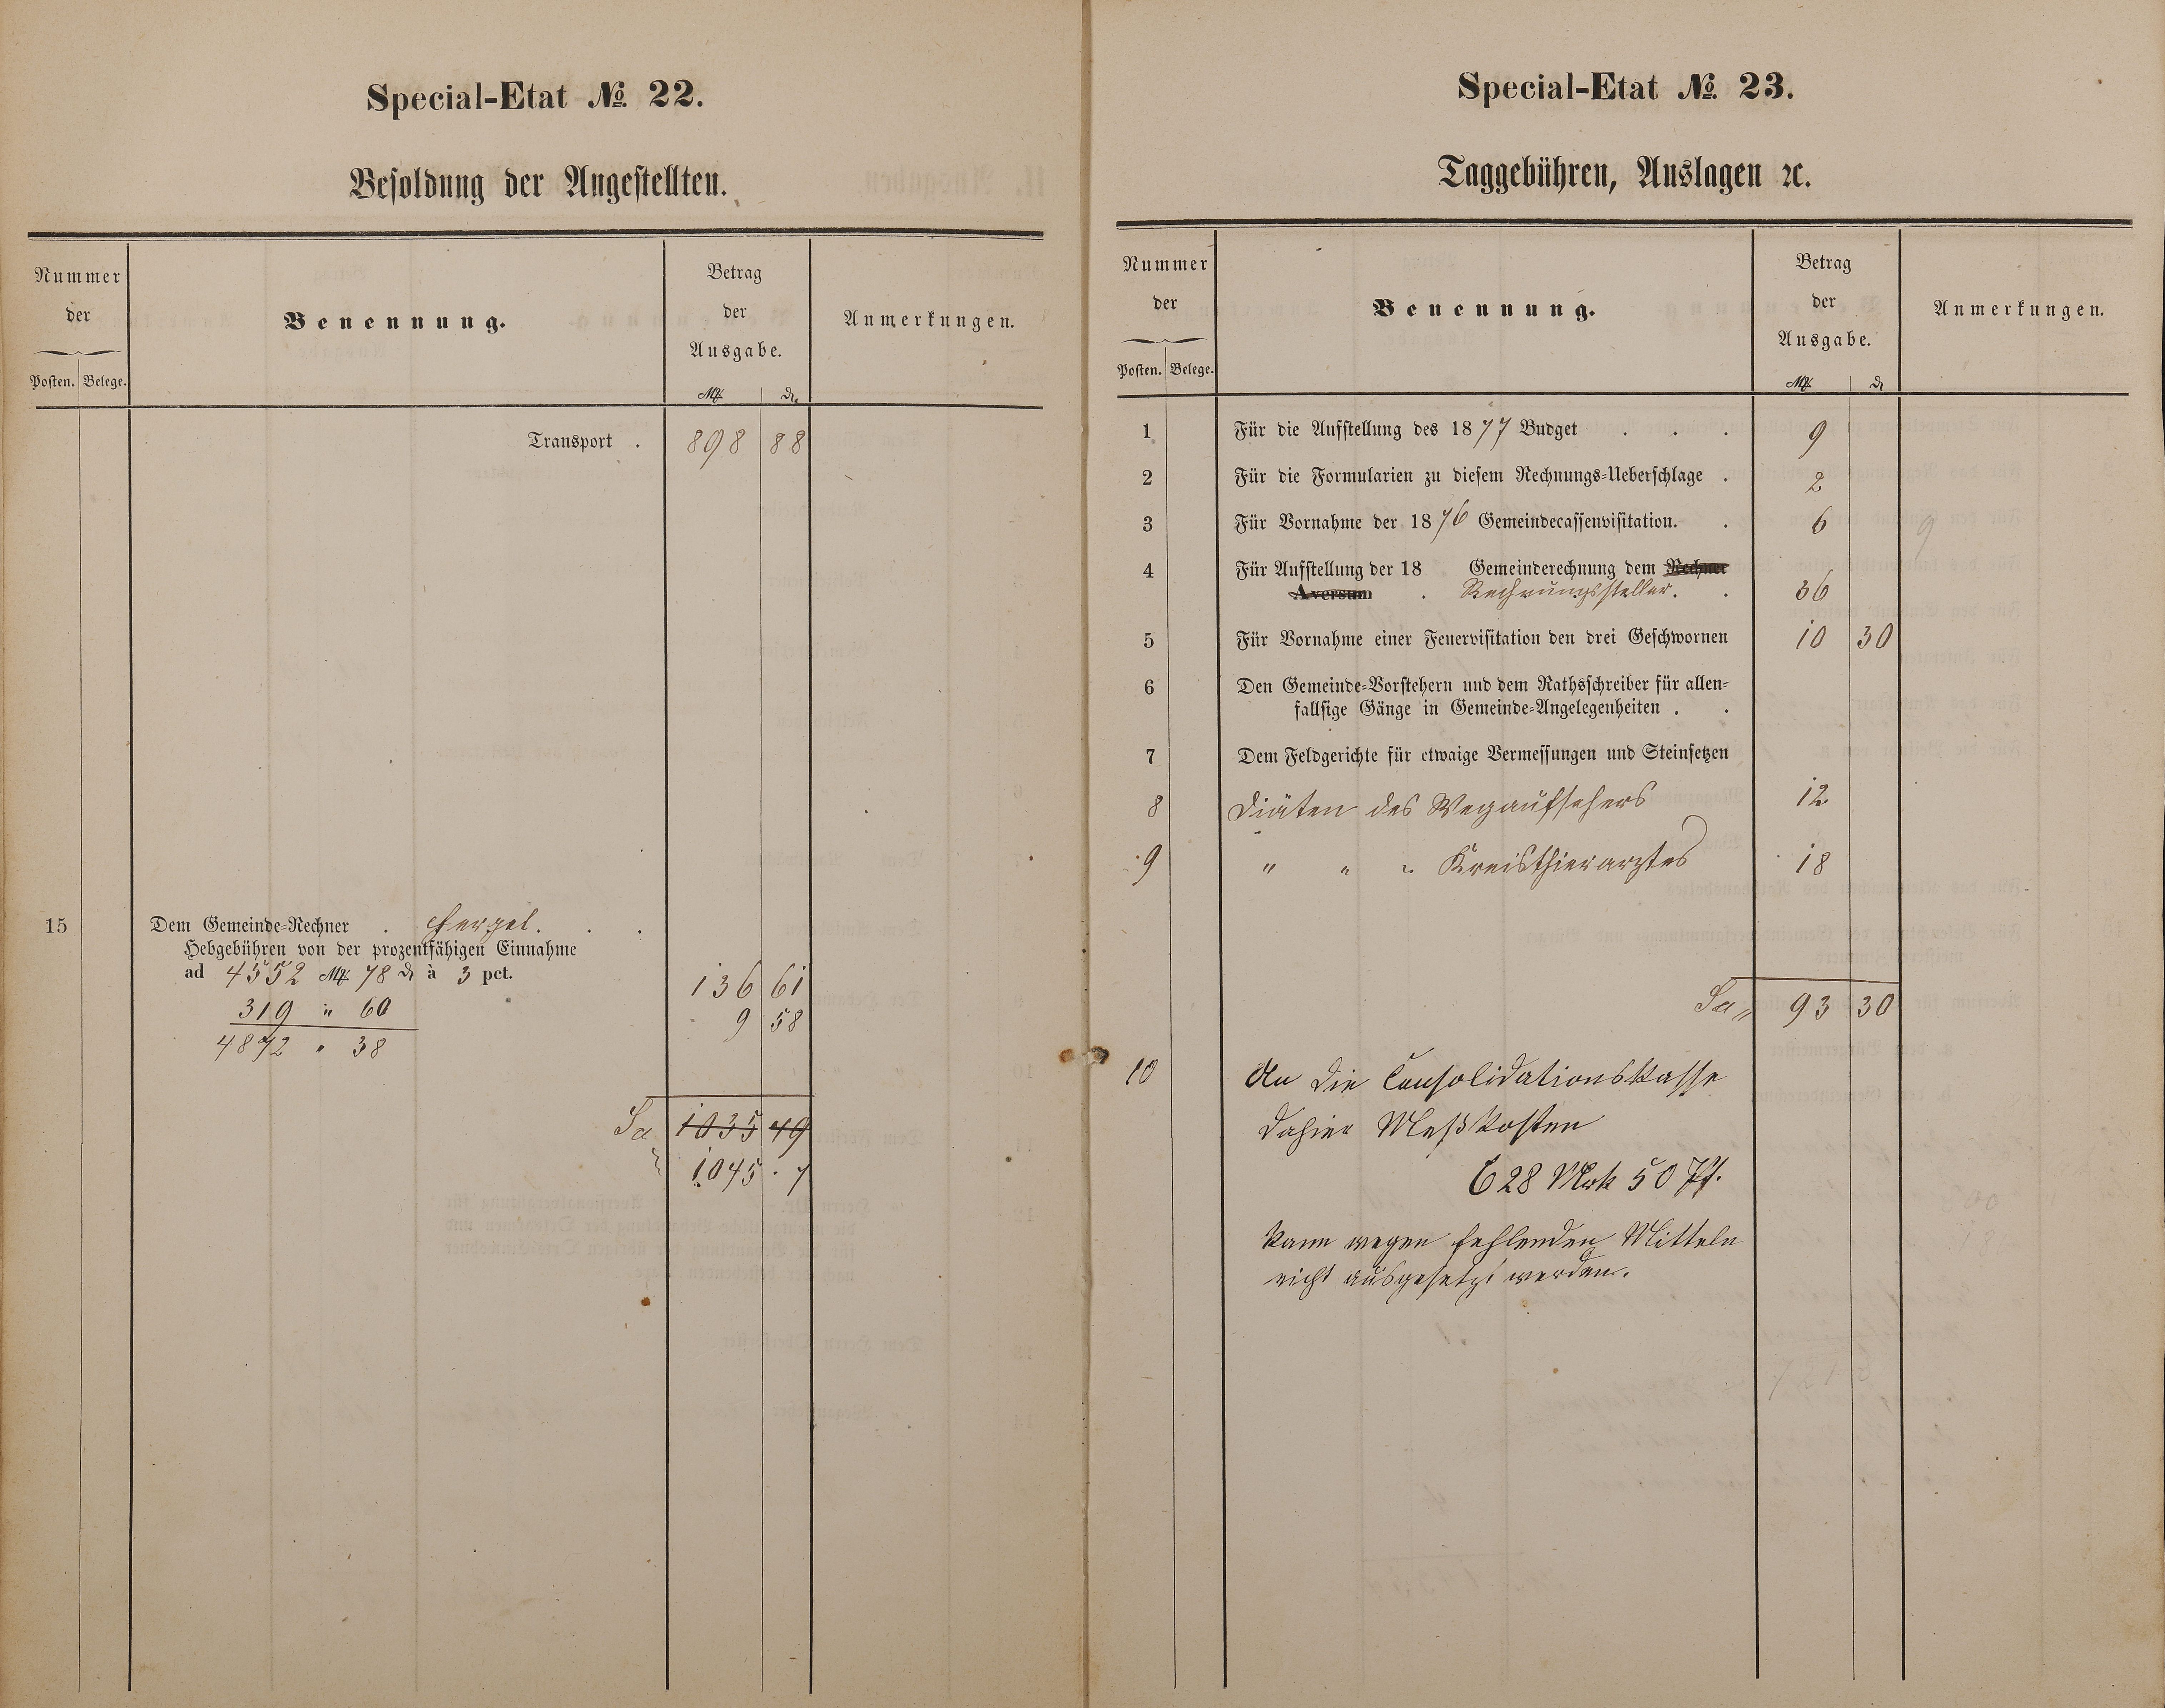 Special-Etat № 22.
Besoldung der Angestellten.
Nummer
der
Posten. Belege.
Benennung.
Betrag
der
Ausgabe.
Mk. ₰.
Anmerkungen.
Transport . 898 88
15 Dem Gemeinde-Rechner .
Hebgebühren von der prozentfähigen Einnahme
ad 4552 Mk 78 ₰ à 3 pct. 136 61
319 " 60 9 58
4872 " 38
Sa 1035 49
1045 . 7
Special-Etat № 23.
Taggebühren, Auslagen ꝛc.
Nummer
der
Posten. Belege.
Benennung.
Betrag
der
Ausgabe.
Mk. ₰
Anmerkungen.
1 Für die Aufstellung des 1877 Budget . . . 9
2 Für die Formularien zu diesem Rechnungs-Ueberschlage . 2
3 Für Vornahme der 1876 Gemeindecassenvisitation. . 6
4 Für Aufstellung der 18 Gemeinderechnung dem Rechner
Aversum . Rechnungssteller. . 36
5 Für Vornahme einer Feuervisitation den drei Geschwornen 10 30
6 Den Gemeinde-Vorstehern und dem Rathsschreiber für allen-
fallsige Gänge in Gemeinde-Angelegenheiten . .
7 Dem Feldgerichte für etwaige Vermessungen und Steinsetzen
8 Diäten des Wegaufsehers 12
9 " " " Kreisthierarztes 18
Sa " 93 30
10 An die Consolidationskasse
dahier Meßkosten
628 Mrk 50 Pf.
kann wegen fehlenden Mitteln
nicht ausgesetzt werden.